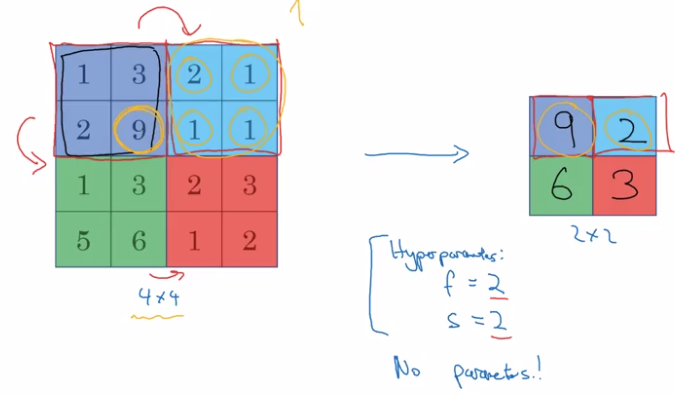 1 3 2 1
2 9 1 1
1 3 2 3
5 6 1 2
4×4
9 2
6 3
2×2
Hyperparameters:
f = 2
s = 2
No parameters!